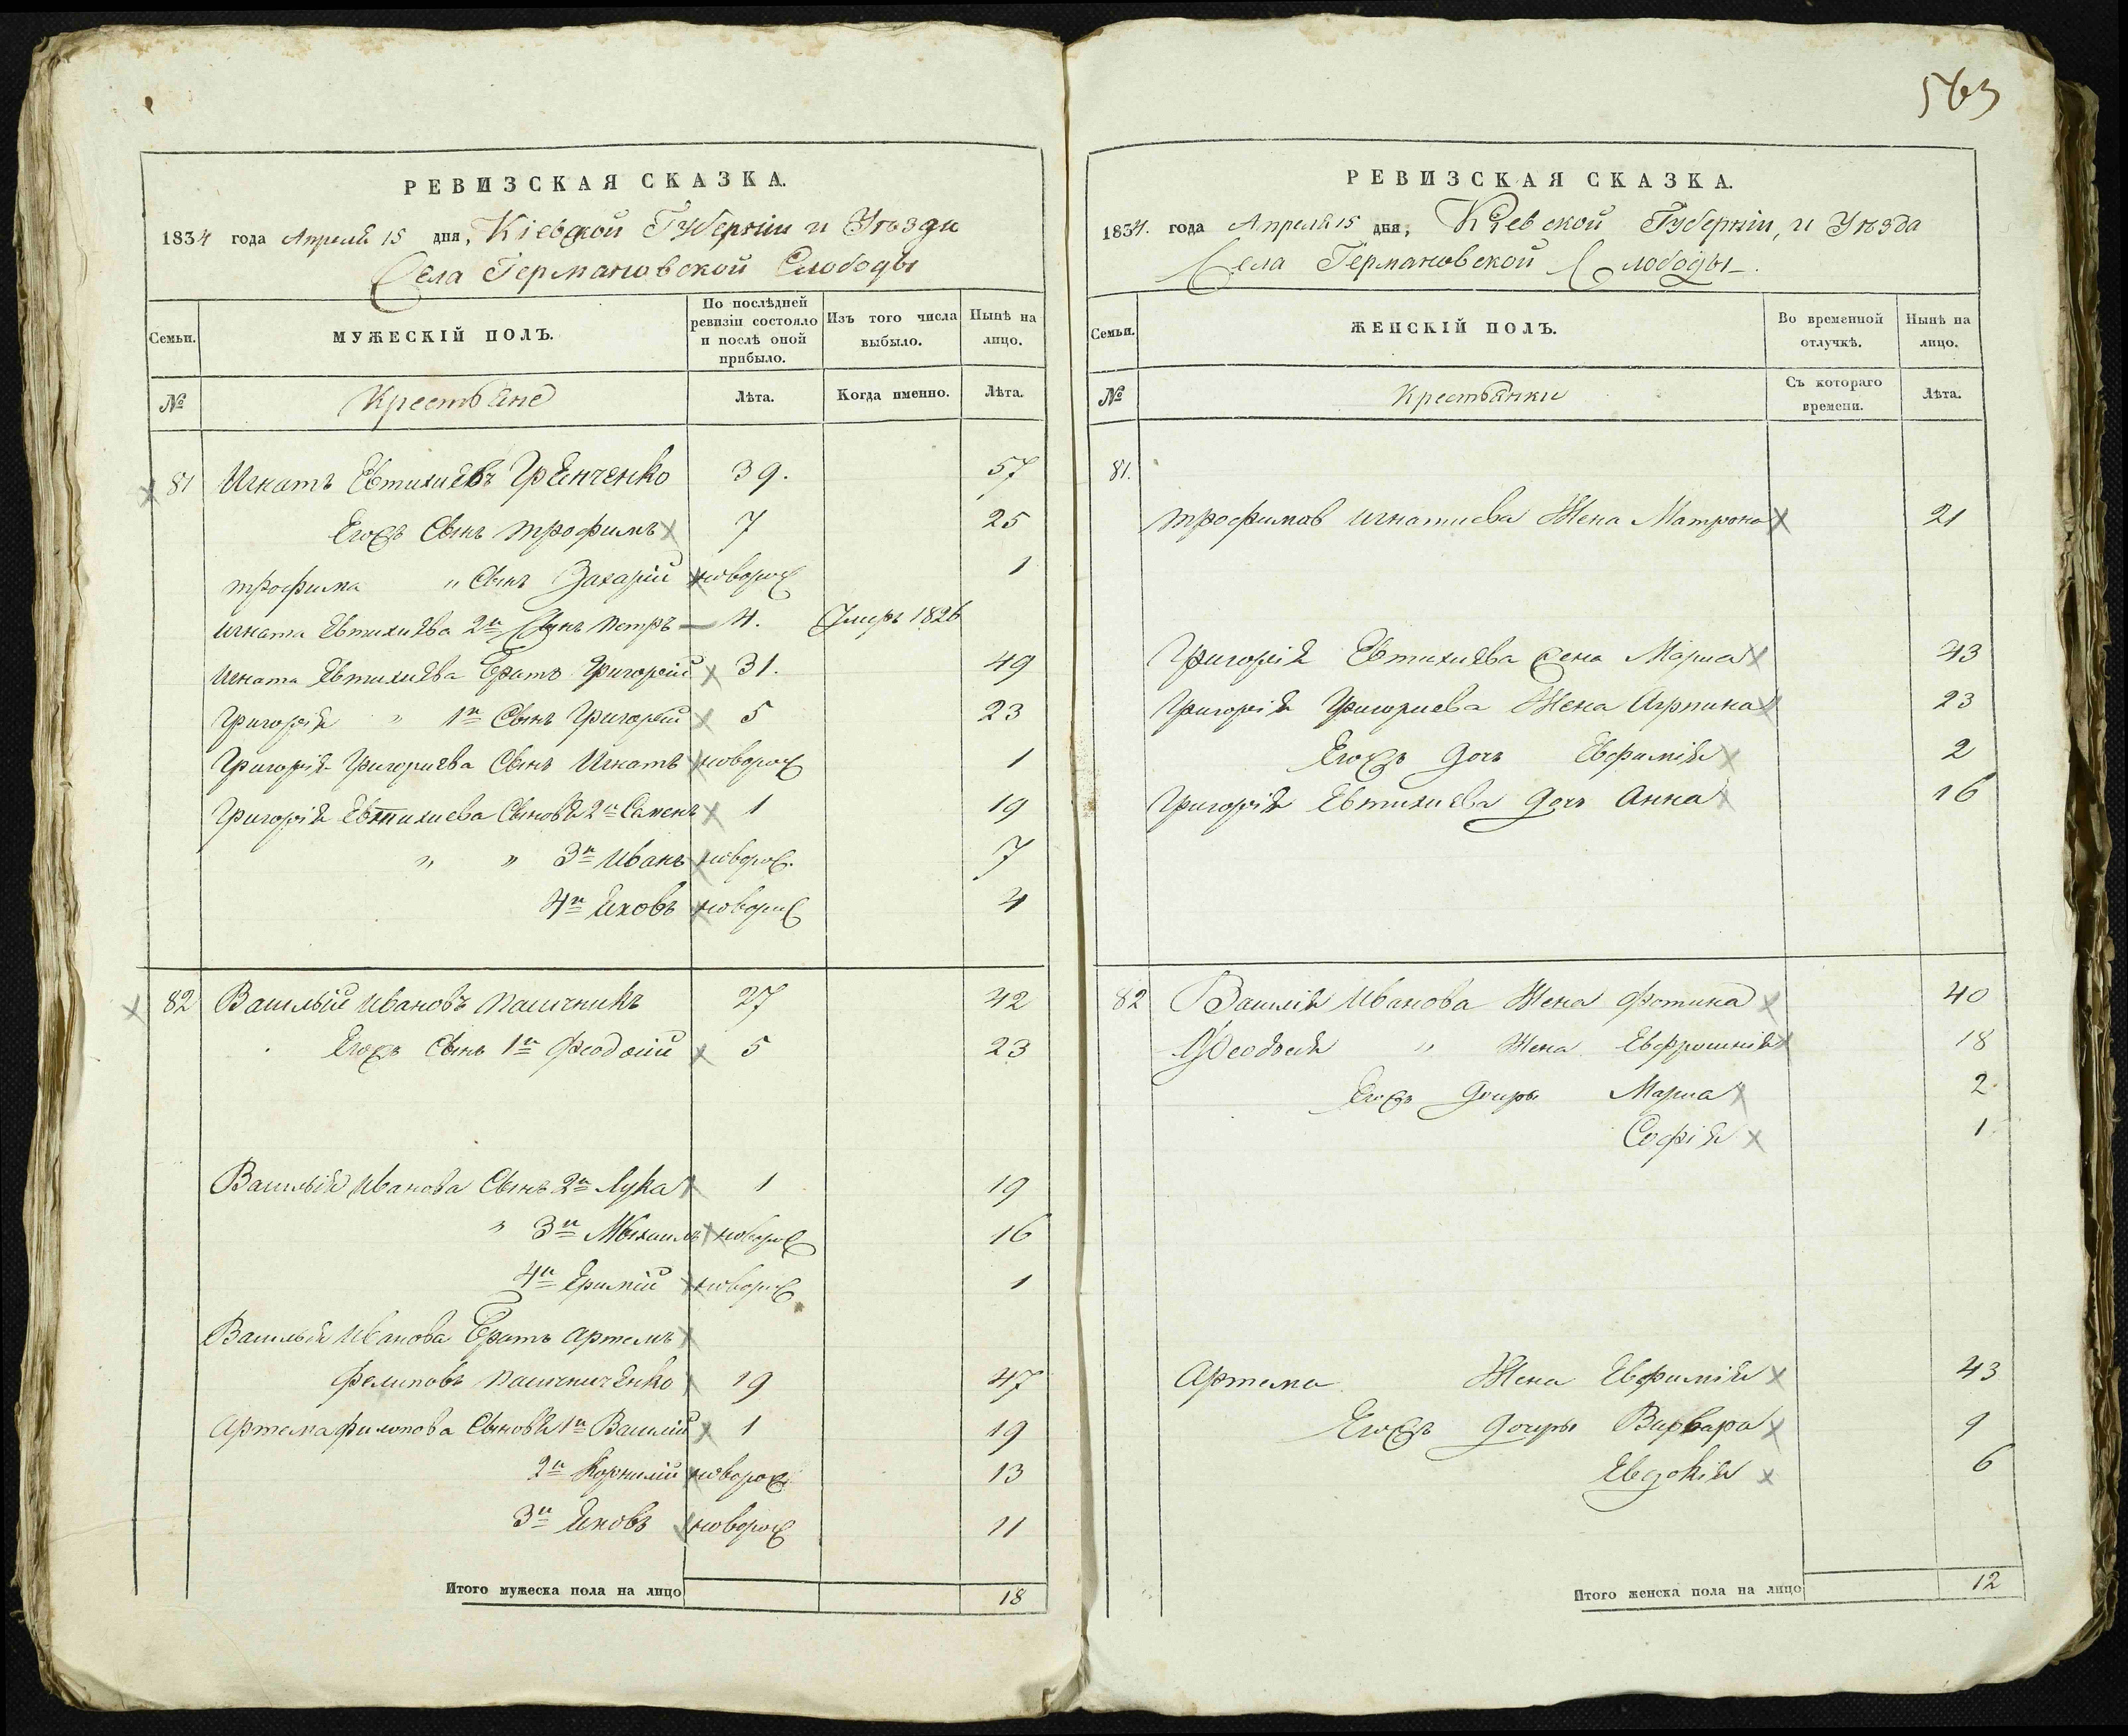 563
РЕВИЗСКАЯ СКАЗКА.
1834 года Апреля 15 дня, Кіевской Губерніи и Уезда
Села Германовской Слободы
Семьи.
МУЖЕСКІЙ ПОЛЪ.
По послѣдней ревизіи состояло и послѣ оной прибыло.
Изъ того числа выбыло.
Нынѣ на лицо.
№
Крестьяне
Лѣта.
Когда именно.
Лѣта.
81 Игнатъ Евтихиевъ Гринченко 39. 57
Его Сынъ трофимъ 7 25
трофима " Сынъ Захарій новорож 1
игната Евтихиева 2й Сынъ петръ — 4. Умеръ 1826
игната Евтихиева Братъ Григорій 31. 49
Григорія " 1й Сынъ Григорій 5 23
Григорія Григориева Сынъ Игнатъ новорож 1
Григорія Евтихиева Сыновья 2й Семенъ 1 19
" " 3й Иванъ новорож. 7
4й Яковъ новорож 4
82 Василій Ивановъ пасичникъ 27 42
Его Сынъ 1й Феодосій 5 23
Василія Иванова Сынъ 2й Лука 1 19
" 3й Михаилъ новорож 16
4й новорож 1
Василія Иванова Братъ артемъ
пасичниченко 19 47
Артема филипова Сыновья 1й Василій 1 19
2й Корнилій новорож 13
3й Яковъ новорож 11
Итого мужеска пола на лицо 18
РЕВИЗСКАЯ СКАЗКА.
1834. года Апреля 15 дня, Кіевской Губерніи, и Уезда
Села Германовской Слободы.
Семьи.
ЖЕНСКІЙ ПОЛЪ.
Во временной отлучкѣ.
Нынѣ на лицо.
№
Крестьянки
Съ котораго времени.
Лѣта.
81.
игнатиева Жена Матрона 21
Григорія Евтихиева Жена Мариа 43
Григорія Григориева Жена Агрпина 23
Его дочь Ефимія 2
Григорія Евтихиева дочь Анна 16
82 Василія Иванова Жена Фотина 40
Феодосия " Жена Евфросинія 18
Его дочери Мариа 2
Софія 1
Артема Жена Евфимія 43
Его дочери Варвара 9
Евдокія 6
Итого женска пола на лицо 12